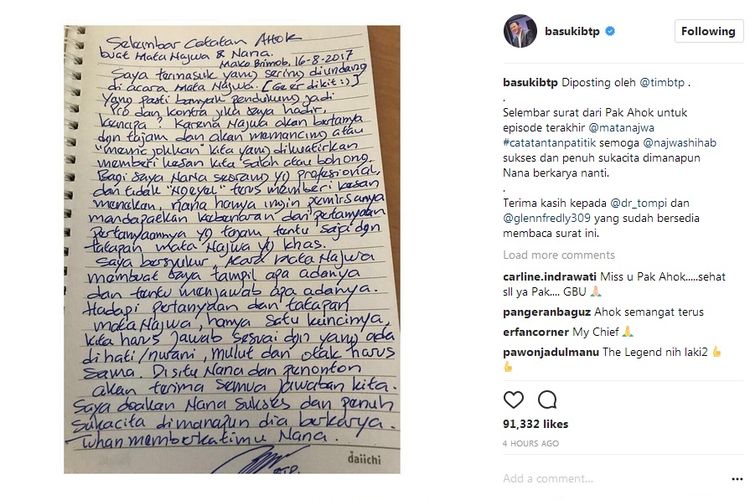 Selembar Catatan Ahok
buat Mata Najwa & Nana.
Mako Brimob, 16-8-2017
Saya termasuk yang sering diundang
di acara Mata Najwa. [Geer dikit :)]
Yang pasti banyak pendukung jadi
Pro dan kontra jika saya hadir,
kenapa? Karena Najwa akan bertanya
dgn tajam dan akan memancing atau
"memojokkan" kita yang dikuatirkan
memberi kesan kita salah atau bohong.
Bagi saya Nana seorang yg profesional,
dan tidak "Ngeyel" terus memberi kesan
menekan, nana hanya ingin pemirsanya
mandapatkan kebenaran dari pertanyaan
pertanyaannya yg tajam tentu saja dgn
tatapan mata Najwa yg khas.
Saya bersyukur acara Mata Najwa
membuat saya tampil apa adanya
dan tentu menjawab apa adanya.
Hadapi pertanyaan dan tatapan
mata Najwa, hanya satu kuncinya,
kita harus jawab sesuai dgn yang ada
di hati/nurani, mulut dan otak harus
sama. Disitu Nana dan penonton
akan terima semua jawaban kita.
Saya doakan Nana Sukses dan penuh
Sukacita dimanapun dia berkarya.
Tuhan memberkatimu Nana.
BTP.
daiichi
basukibtp
Following
basukibtp Diposting oleh @timbtp .
.
Selembar surat dari Pak Ahok untuk
episode terakhir @matanajwa
#catatantanpatitik semoga @najwashihab
sukses dan penuh sukacita dimanapun
Nana berkarya nanti.
.
Terima kasih kepada @dr_tompi dan
@glennfredly309 yang sudah bersedia
membaca surat ini.
Load more comments
carline.indrawati Miss u Pak Ahok.....sehat
sll ya Pak.... GBU 🙏🏻
pangeranbaguz Ahok semangat terus
erfancorner My Chief 🙏
pawonjadulmanu The Legend nih laki2 👍
👍
91,332 likes
4 HOURS AGO
Add a comment...